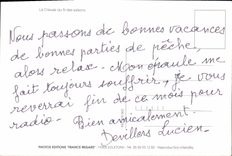 La Clusaz au fil des saisons
Nous passons de bonnes vacances
de bonnes parties de pêche,
alors relax. Mon épaule me
fait toujours souffrir, je vous
reverrai fin de ce mois pour
radio. Bien amicalement.
Devillers Lucien.
PHOTOS EDITIONS "FRANCE REGARD"